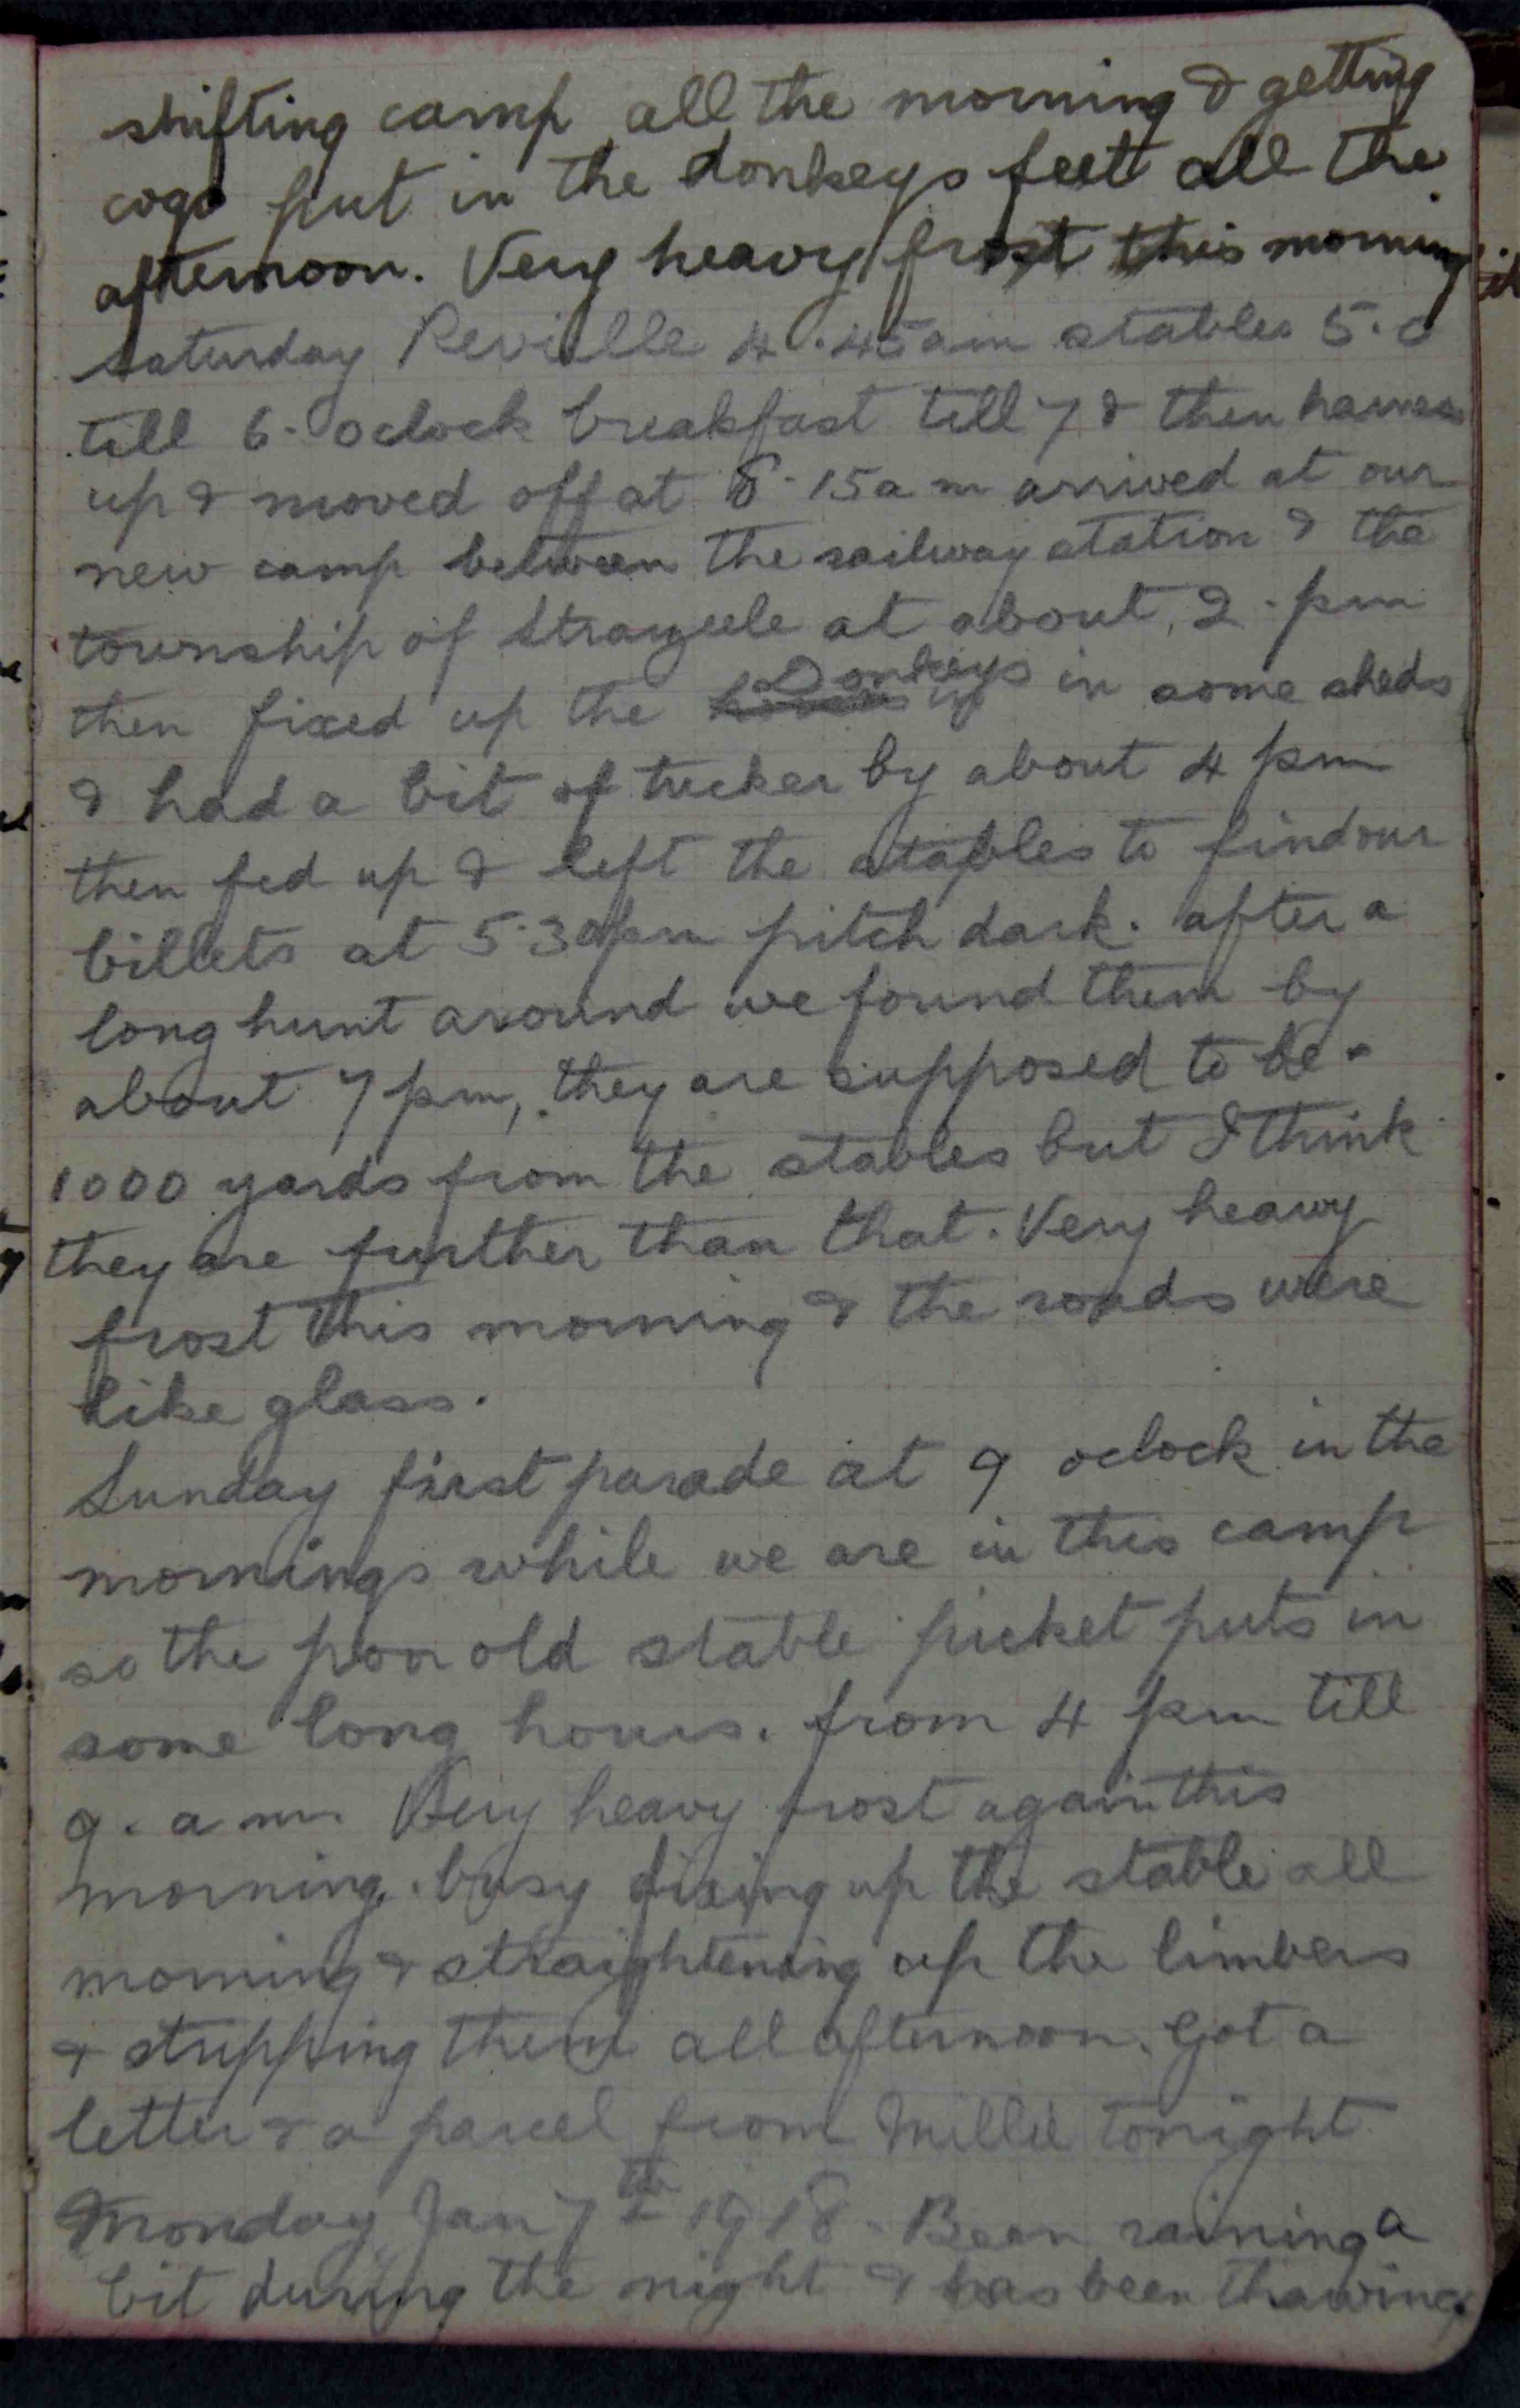 shifting camp all the morning & getting
cogs put in the donkeys feet all the
afternoon. Very heavy frost this morning
saturday Reviille 4.45am stables 5.0
till 6. oclock breakfast till 7 & then harness
up & moved off at 8.15 a m arrived at our
new camp between the railway station & the
township of Strazeele at about, 2. pm
then fixed up the Donkeys in some sheds
& had a bit of tucker by about 4 pm
then fed up & left the stables to find our
billets at 5.30pm pitch dark. after a
long hunt around we found them by
about 7 pm, they are supposed to be
1000 yards from the stables but I think
they are further than that. Very heavy
frost this morning & the roads were
like glass.
Sunday first parade at 9 oclock in the
mornings while we are in this camp
so the poor old stable picket puts in
some long hours. from 4 pm till
9. a m. Very heavy frost again this
morning. busy fixing up the stable all
morning & straightening up the limbers
& stripping them all afternoon. Got a
letter & a parcel from Millie tonight
Monday Jan 7th 1918. Been raining a
bit during the night & has been thawing